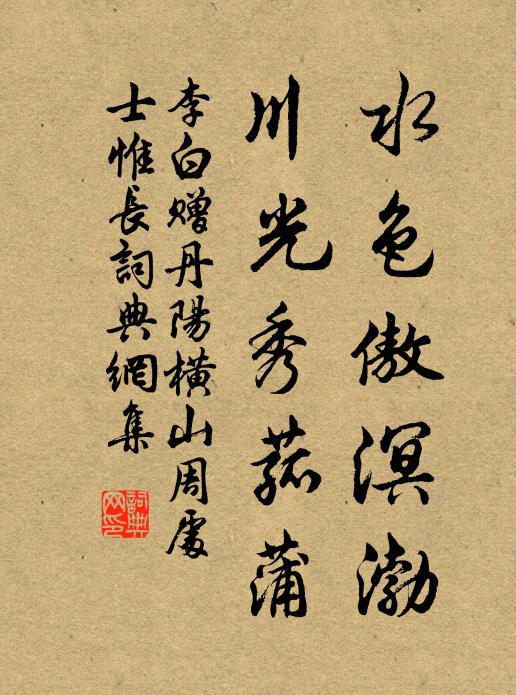 水色傲溟渤
川光秀菰蒲
李白贈丹陽橫山周處
士惟長詞典網集
詞典
网印